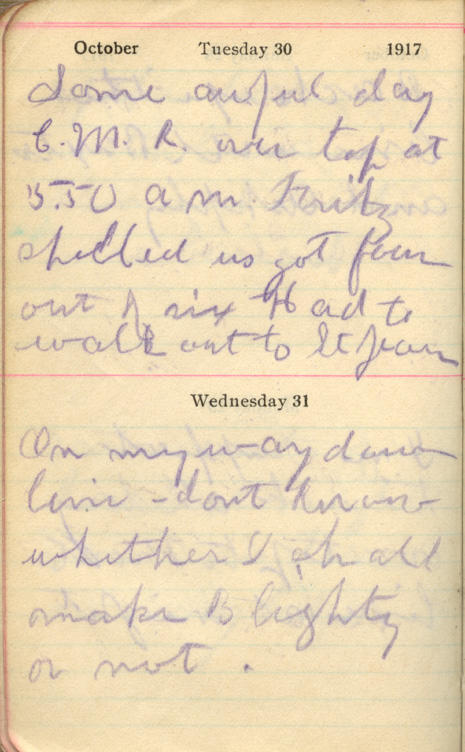 October Tuesday 30 1917
Some awful day
C.M.R. over top at
5.50 a m Fritz
shelled us got four
out of six Had to
walk out to St Jean
Wednesday 31
On my way down
line - dont know
whether I shall
make Blighty
or not .